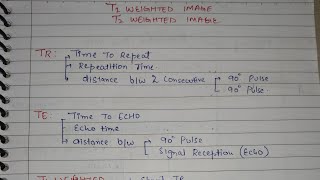 T1 WEIGHTED IMAGE
T2 WEIGHTED IMAGE
TR: Time To Repeat
Repeatition Time
distance b/w 2 consecutive 90° Pulse
90° Pulse
TE: Time To ECHO
Echo time
distance b/w 90° Pulse
Signal Reception (Echo)